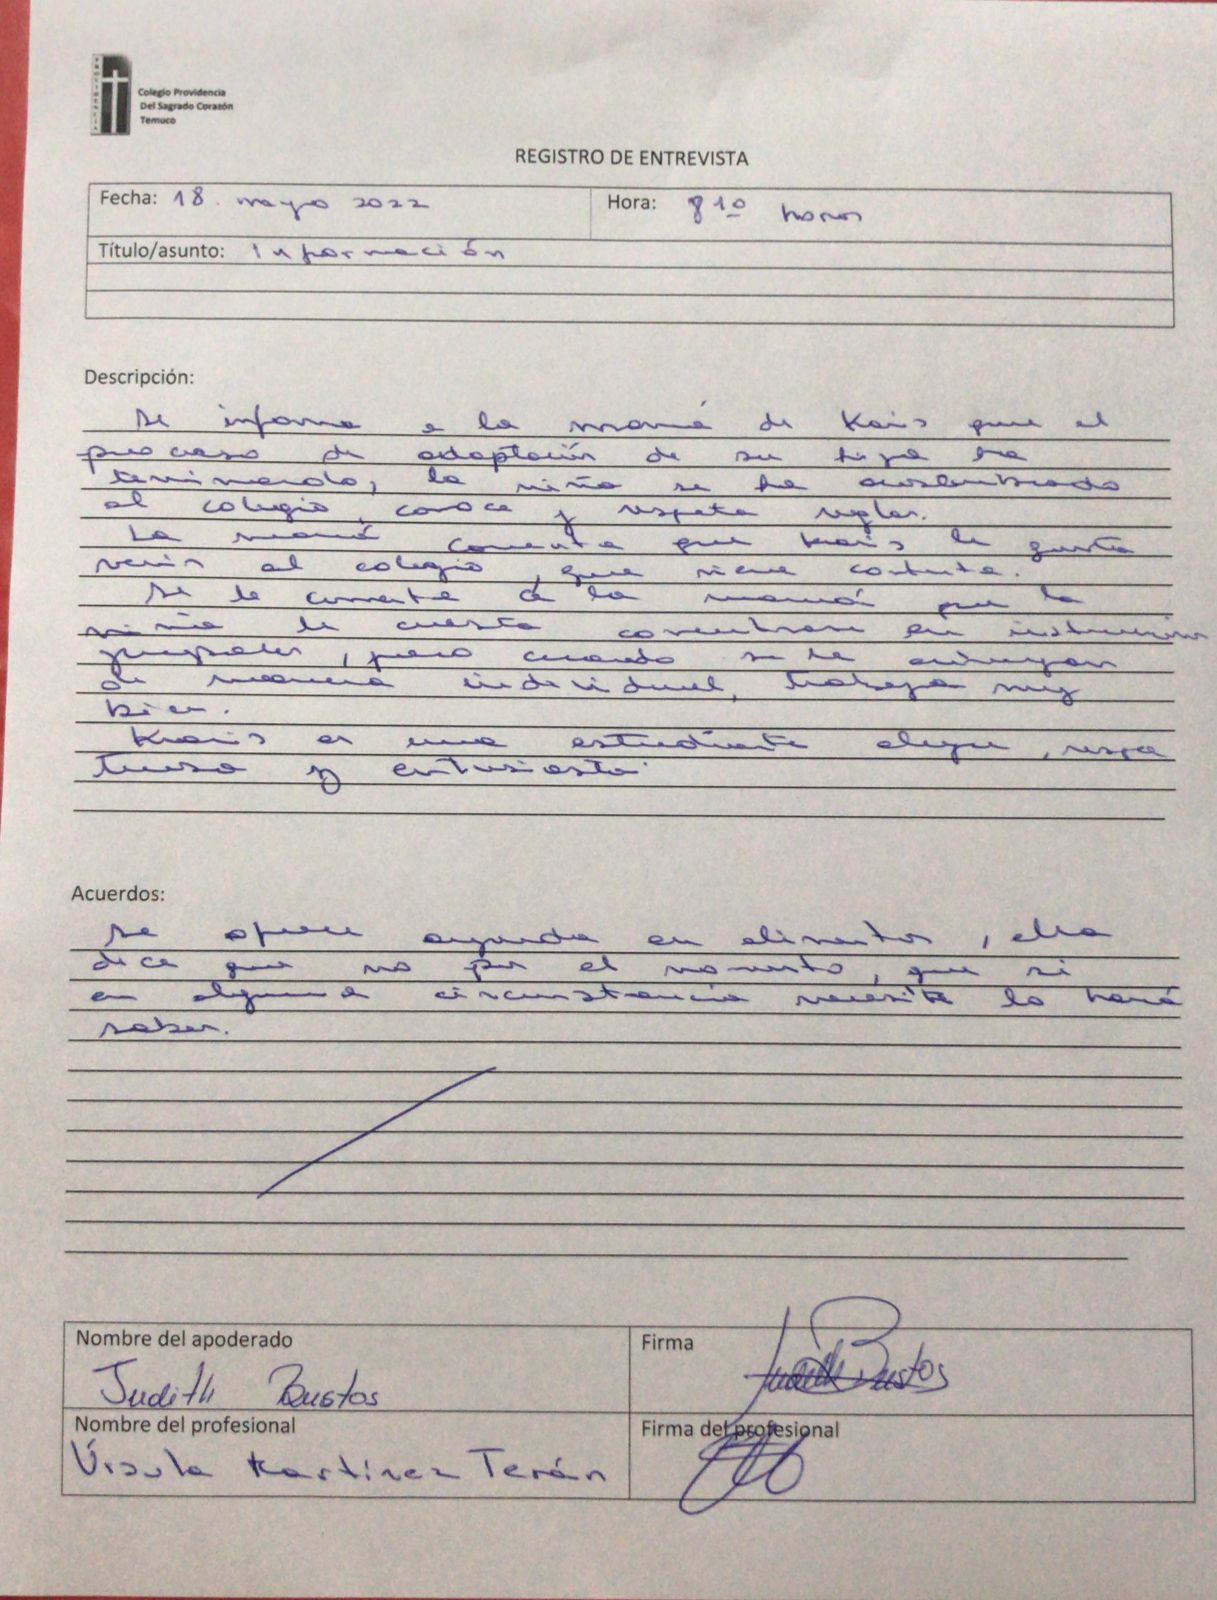 Colegio Providencia
Del Sagrado Corazón
Temuco
REGISTRO DE ENTREVISTA
Fecha: 18. mayo 2022 Hora: 8 10 horas
Título/asunto: Información
Descripción:
Se informa a la mamá de Kais que el
proceso de adaptación de su hija ha
terminado, la niña se ha
al colegio, conoce y respeta reglas.
La mamá comenta que Kais le gusta
venir al colegio, que viene contenta.
Se le comenta a la mamá que la
niña le cuesta concentrarse en instrucciones
grupales, pero cuando se le entregan
de manera individual, trabaja muy
bien.
es una estudiante alegre, respe
tuosa y entusiasta.
Acuerdos:
Se ofrece ayuda en alimentos, ella
dice que no por el momento, que si
en alguna circunstancia necesita lo hará
saber.
Nombre del apoderado Firma
Judith Bustos Judith Bustos
Nombre del profesional Firma del profesional
Úrsula Martínez Terán